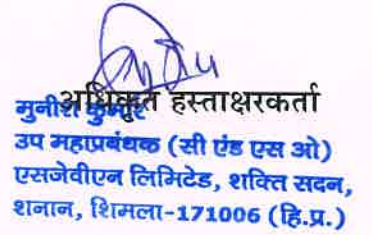 अधिकृत हस्ताक्षरकर्ता
मुनीश कुमार
उप महाप्रबंधक (सी एंड एस ओ)
एसजेवीएन लिमिटेड, शक्ति सदन,
शनान, शिमला-171006 (हि.प्र.)